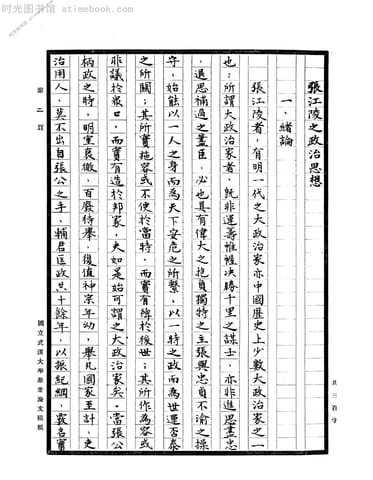 时光图书馆 - atimebook.com
張江陵之政治思想
一、緒論
張江陵者，有明一代之大政治家亦中國歷史上少數大政治家之一
也；所謂大政治家者，旣非運籌帷幄決勝千里之謀士，亦非進思盡忠
，退思補過之藎臣，必也具有偉大之抱負獨特之主張與忠貞不渝之操
守，始能以一人之身而為天下安危之所繫，以一時之政而為世運否泰
之所關；其所實施容或不便於當時，而實有裨於後世；其所作為容或
非議於衆口，而實有造於邦家，夫如是始可謂之大政治家矣。當張公
柄政之時，明室衰微，百廢待舉，復值神宗年幼，舉凡國家至計，吏
治用人，莫不出自張公之手，輔君匡政共十餘年，以振紀綱，覈名實
第二頁
國立武漢大學畢業論文稿紙
共三百字
时光图书馆 - atimebook.com